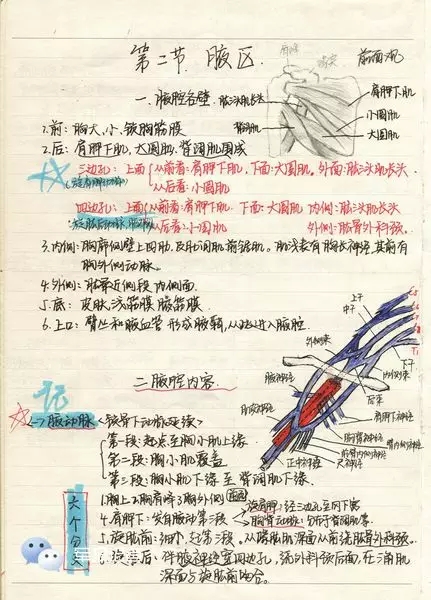 第二节 腋区
前面观
一、腋腔各壁
肱三头肌长头
肩胛下肌
小圆肌
大圆肌
背阔肌
1.前：胸大、小、锁胸筋膜
2.后：肩胛下肌、大圆肌、背阔肌围成
三边孔：上面 从前者：肩胛下肌，下面：大圆肌，外面：肱三头肌长头
从后者：小圆肌
四边孔：上面 从前看：肩胛下肌 下面：大圆肌 内侧：肱三头肌长头
从后看：小圆肌 外侧：肱骨外科颈
3.内侧：胸廓侧壁上四肋，及肋间肌前锯肌。肌浅表有胸长神经，其前有
胸外侧动脉。
4.外侧：肱骨近侧段内侧面
5.底：皮肤、浅筋膜、腋筋膜
6.上口：臂丛和腋血管形成腋鞘，从此进入腋腔
上干
中干
下干
外侧束
内侧束
后束
C5
T1
二、腋腔内容
记
<一>腋动脉<锁骨下动脉延续>
第一段：起点至胸小肌上缘
第二段：胸小肌覆盖
第三段：胸小肌下缘至背阔肌下缘
腋神经
肌皮神经
正中神经
尺神经
肩胛下神经
胸背神经
臂内侧皮神经
前臂内侧皮神经
六个分支
1.胸上 2.胸肩峰 3.胸外侧
4.肩胛下：发自腋动第三段
旋肩胛：经三边孔至冈下窝
胸背动脉
5.旋肱前：细小，起第三段，
6.旋肱后：伴腋神经穿四边孔，绕外科颈后面，在三角肌
深面与旋肱前吻合。